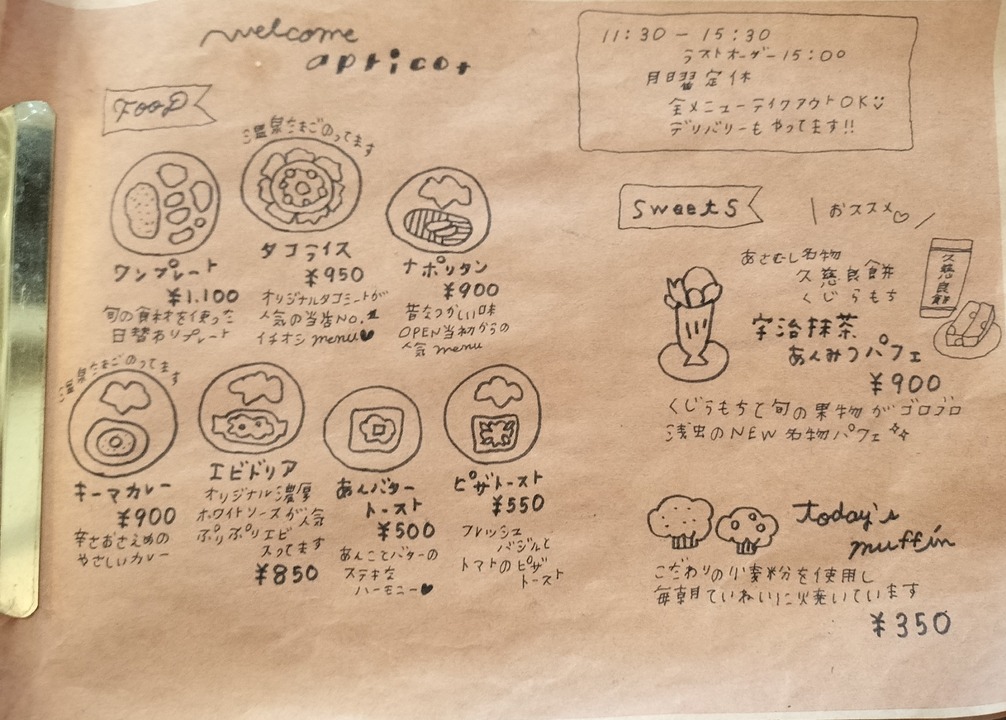 welcome
apricot
11:30 - 15:30
ラストオーダー 15:00
月曜定休
全メニューテイクアウトOK
デリバリーもやってます!!
FooD
温泉たまごのってます
ワンプレート
¥1.100
旬の食材を使った
日替わりプレート
タコライス
¥950
オリジナルタコミートが
人気の当店NO.1
イチオシ menu♥
ナポリタン
¥900
昔なつかしい味
OPEN当初からの
人気 menu
温泉たまごのってます
キーマカレー
¥900
辛さおさえめの
やさしいカレー
エビドリア
オリジナル濃厚
ホワイトソースが人気
ぷりぷりエビ
入ってます
¥850
あんバター
トースト
¥500
あんことバターの
ステキな
ハーモニー♥
ピザトースト
¥550
フレッシュ
バジルと
トマトのピザ
トースト
Sweets
おススメ♡
あさむし名物
久慈良餅
くじらもち
久慈良餅
宇治抹茶
あんみつパフェ
¥900
くじらもちと旬の果物がゴロゴロ
浅虫のNEW名物パフェ
today's
muffin
こだわりの小麦粉を使用し
毎朝ていねいに焼いています
¥350